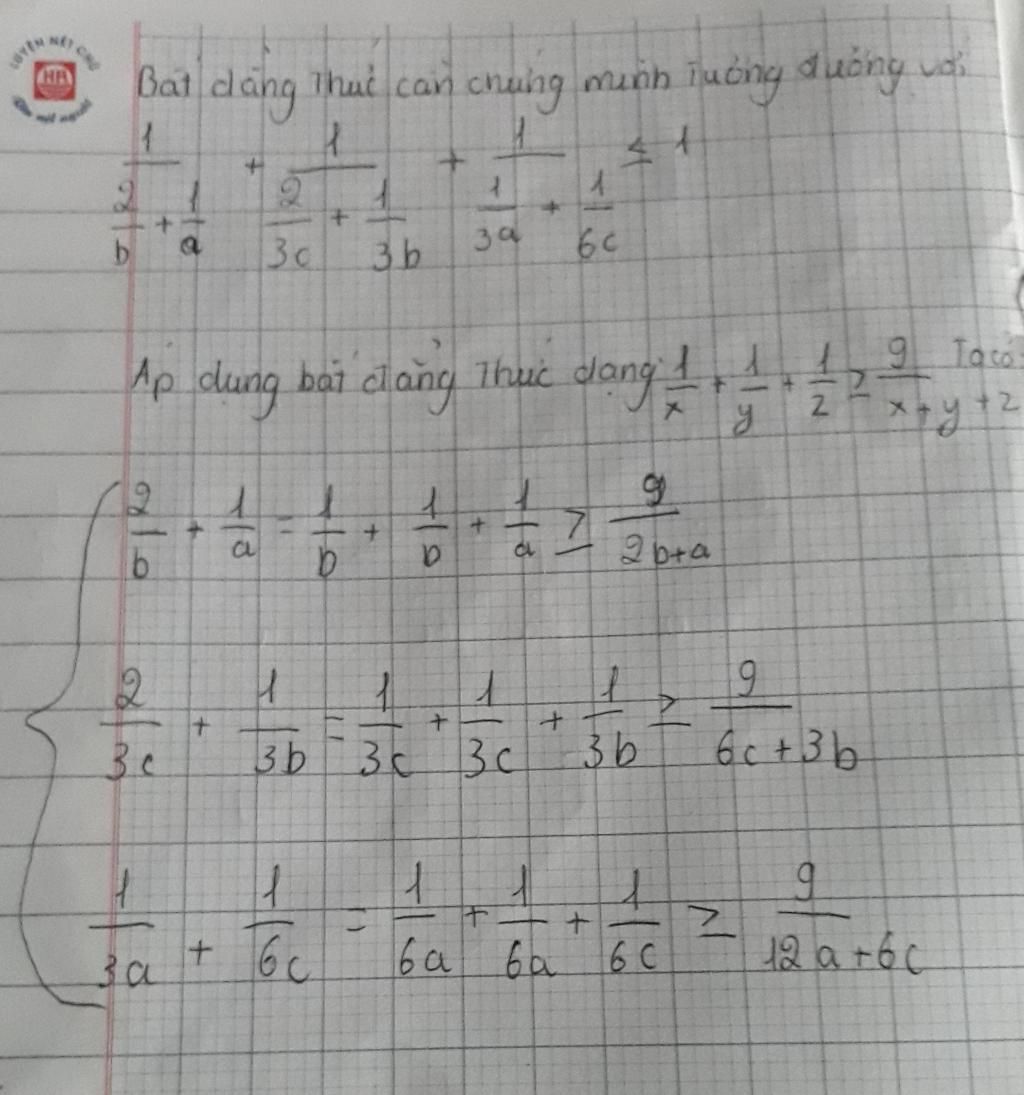 LUYỆN NÉT CHỮ
HA
Bất đẳng thức cần chứng minh tương đương với
1/(2/b + 1/a) + 1/(2/3c + 1/3b) + 1/(1/3a + 1/6c) ≤ 1
Áp dụng bất đẳng thức dạng 1/x + 1/y + 1/z ≥ 9/(x+y+z) Ta có
2/b + 1/a = 1/b + 1/b + 1/a ≥ 9/(2b+a)
2/3c + 1/3b = 1/3c + 1/3c + 1/3b ≥ 9/(6c+3b)
1/3a + 1/6c = 1/6a + 1/6a + 1/6c ≥ 9/(12a+6c)